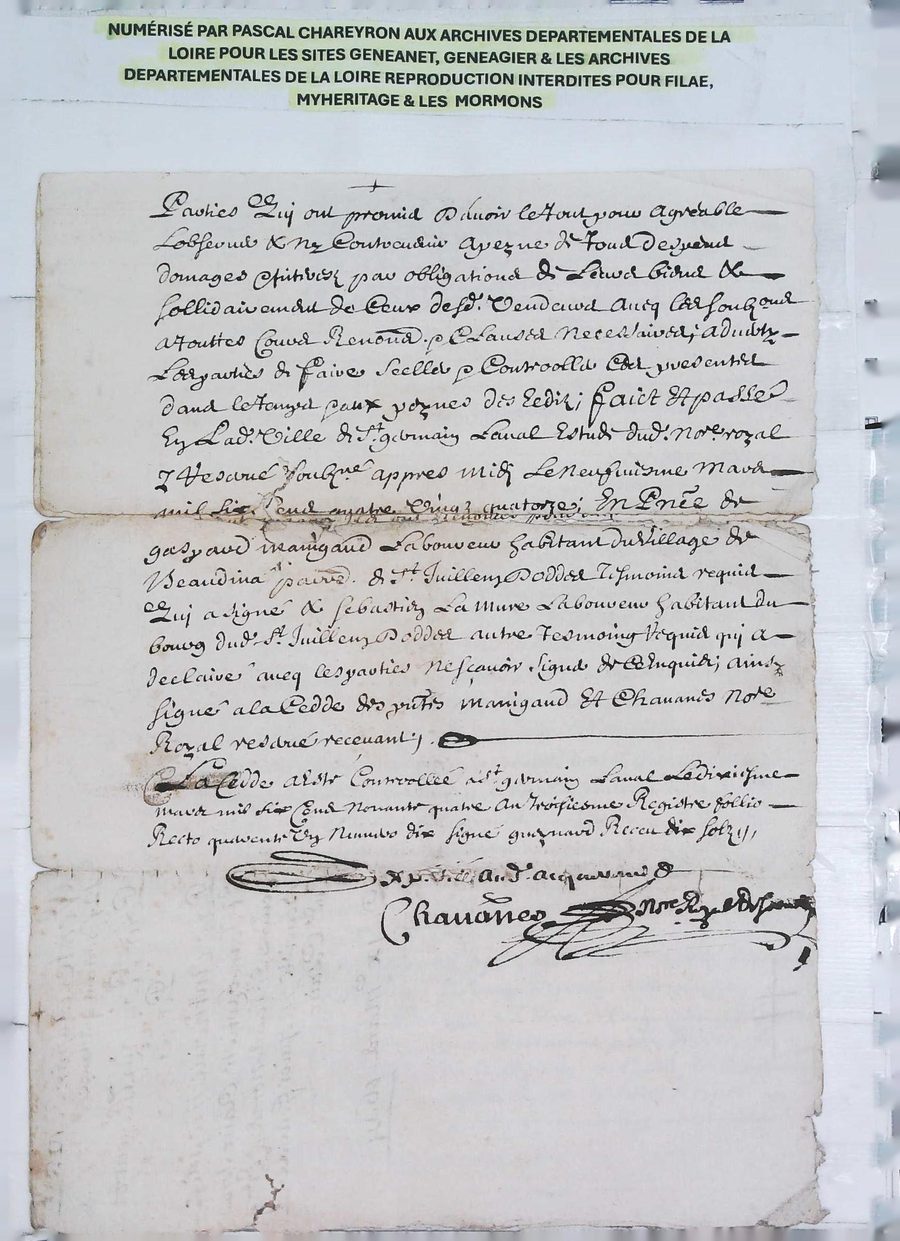 NUMÉRISÉ PAR PASCAL CHAREYRON AUX ARCHIVES DEPARTEMENTALES DE LA
LOIRE POUR LES SITES GENEANET, GENEAGIER & LES ARCHIVES
DEPARTEMENTALES DE LA LOIRE REPRODUCTION INTERDITES POUR FILAE,
MYHERITAGE & LES MORMONS
Parties Qui ont promis davoir le tout pour agreable
Lobserver & Ny Contrevenir a peyne de tous despens
domages par obligations de Leurs biens &
sollidairement de Ceux desd. Vendeurs aucq les soubzmis
a touttes Cours Renon. p Clauses Necessaires; adverty
Les parties de faire Seeller p Controoller Ces presentes
dans le temps paux peynes des Edits; faict Et passé
En Lad. Ville de St germain Laval Estude dud. Nore. royal
Reservé soubzne appres midi Le Neufviesme Mars
mil six Cens quatre Vingt quatorze; En Pnce de
gaspard manigaud Laboureur habitant du Village de
Beaudina parre. de St Juillen Doddes Tesmoins requis
Qui a signé & sebastien La mure Laboureur habitant du
bourg dud. St Juillen Doddes autre Tesmoing Requis qui a
declairé aucq les parties Ne scavoir signer de Ce Enquis; ainsy
signé a la Cedde des pntes manigaud Et Chavanes Nore
Royal reservé recevant;
La Cedde a esté Controollée a St germain Laval Le dixiesme
mars mil six Cens Nonante quatre Au troisiesme Registre follio
Recto quarente Un Numero dix signé Receu dix solz
Chavanes Nore Royal